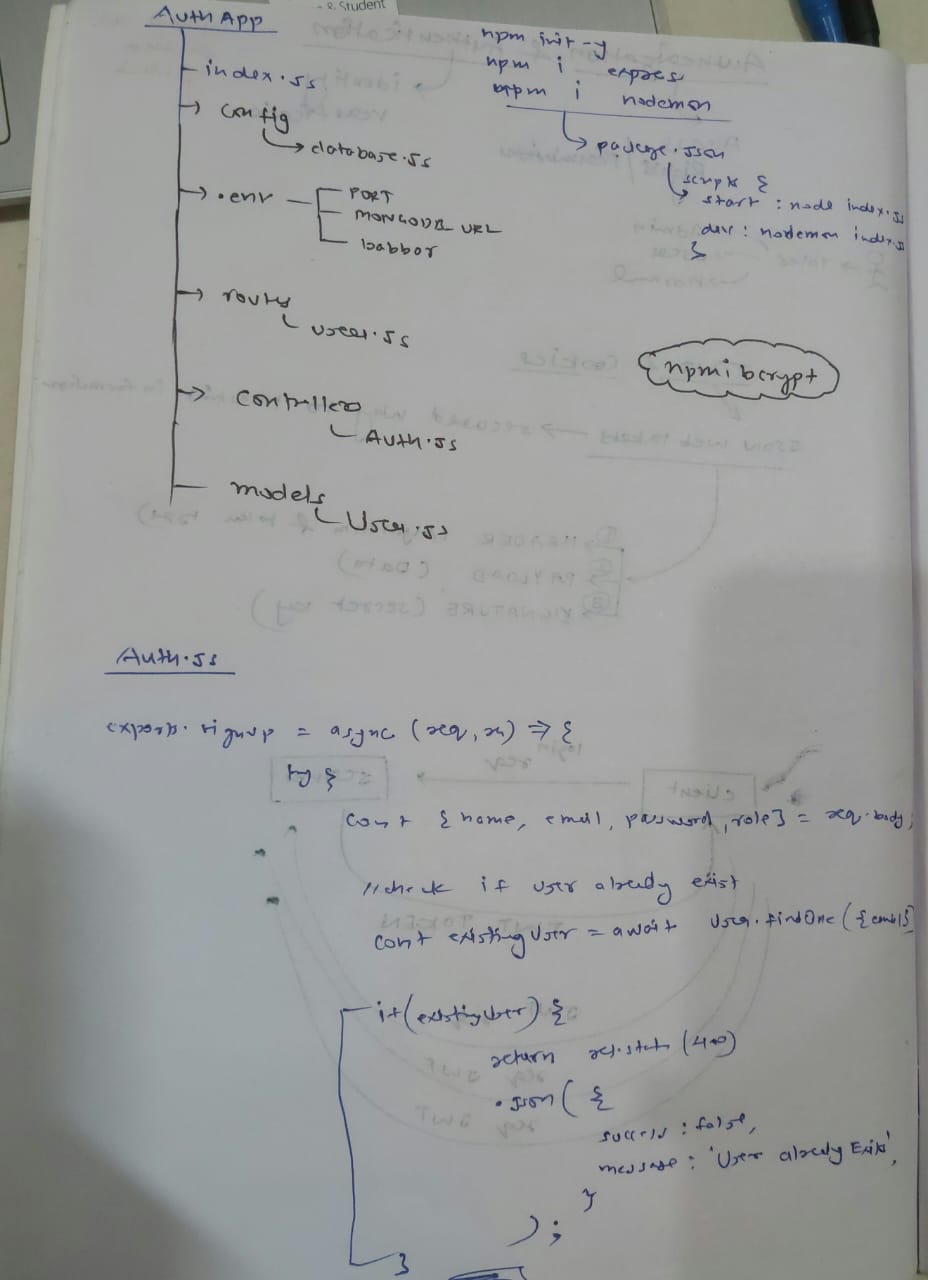 R. Student
Auth App
index.js
config
database.js
.env
PORT
MONGODB_URL
babbar
routes
user.js
controllers
Auth.js
models
User.js
npm init -y
npm i express
npm i nodemon
package.json
scripts {
start : node index.js
dev : nodemon index.js
}
npm i bcrypt
Auth.js
exports.signup = async (req, res) => {
try {
const { name, email, password, role} = req.body;
//check if user already exist
const existingUser = await User.findOne({email})
if(existingUser) {
return res.status(400)
.json( {
success : false,
message : 'User already Exist',
}
);
}